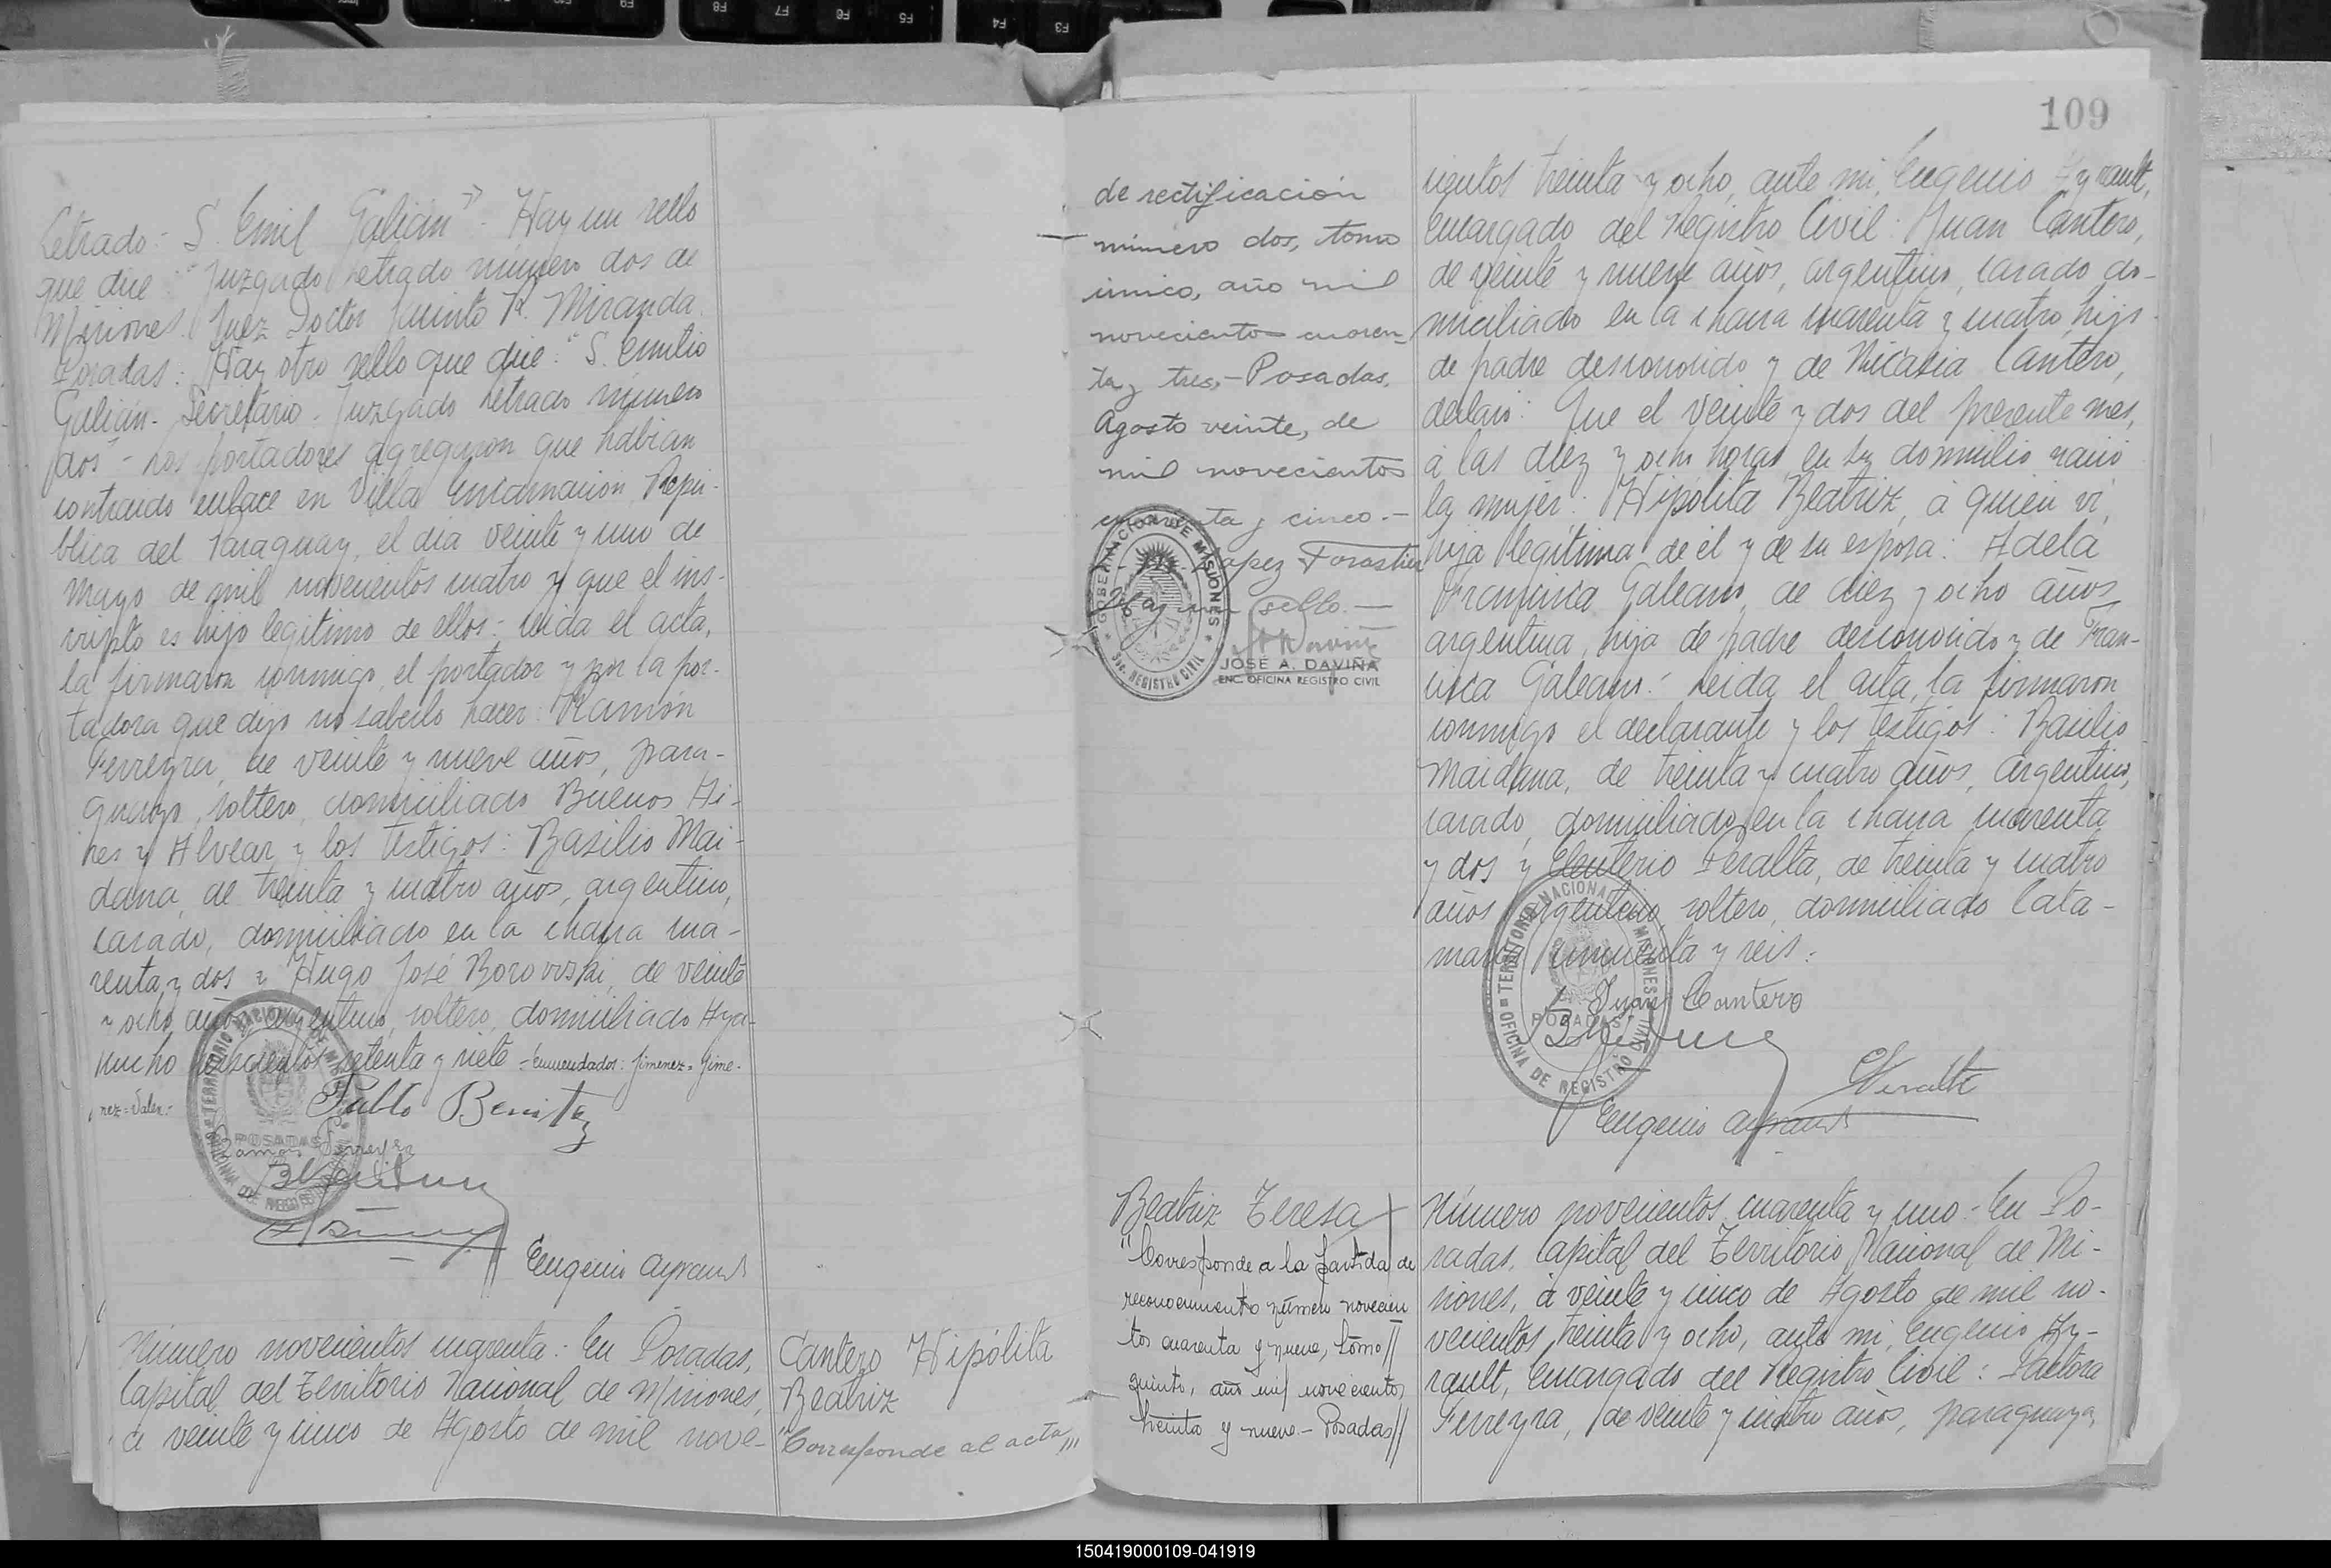 Letrado:- S. Emil Galian". Hay un sello
que dice: "Juzgado Letrado número dos de
Misiones. Juez Doctor Jacinto R. Miranda.
Posadas: Hay otro sello que dice: "S. Emilio
Galián- Secretario- Juzgado Letrado número
dos"- Los portadores agregaron que habian
contraido enlace en Villa Encarnación, Repú-
blica del Paraguay, el dia veinte y uno de
Mayo de mil novecientos cuatro y que el ins-
cripto es hijo legitimo de ellos:- Leida el acta,
la firmaron conmigo, el portador y por la por-
tadora que dijo no saberlo hacer: Ramón
Ferreyra, de veinte y nueve años, para-
guayo, soltero, domiciliado Buenos Ai-
res y Alvear y los testigos: Basilio Mai-
dana, de treinta y cuatro años, argentino,
casado, domiciliado en la chacra cua-
renta y dos y Hugo José Borowski, de veinte
y ocho años, argentino, soltero, domiciliado Aya-
cucho setenta y siete - Enmendados: Jimenez = Jime-
nez = Valen:-
Pablo Benitez
Ramón Ferreyra
Eugenio Ayrault
TERRITORIO NACIONAL DE MISIONES
POSADAS
OFICINA DE REGISTRO CIVIL
Número novecientos cuarenta: En Posadas,
Capital del Territorio Nacional de Misiones,
a veinte y cinco de Agosto de mil nove-
Cantero Hipólita
Beatriz
"Corresponde al acta///
109
de rectificación
número dos, tomo
único, año mil
novecientos cuaren-
ta y tres.- Posadas,
Agosto veinte, de
mil novecientos
cuarenta y cinco.-
Lopez Forastier
Hay un sello.-
GOBERNACION DE MISIONES
Sec. REGISTRO CIVIL
JOSÉ A. DAVIÑA
ENC. OFICINA REGISTRO CIVIL
cientos treinta y ocho, ante mi, Eugenio Ayrault,
Encargado del Registro Civil: Juan Cantero,
de veinte y nueve años, argentino, casado do-
miciliado en la chacra cuarenta y cuatro, hijo
de padre desconocido y de Nicasia Cantero,
declaró: Que el veinte y dos del presente mes,
á las diez y ocho horas, en su domicilio nació
la mujer: Hipólita Beatriz, á quien vi,
hija legitima de él y de su esposa: Adela
Francisca Galeano, de diez y ocho años,
argentina, hija de padre desconocido y de Fran-
cisca Galeano.- Leida el acta, la firmaron
conmigo el declarante y los testigos: Basilio
Maidana, de treinta y cuatro años, argentino,
casado, domiciliado en la chacra cuarenta
y dos y Eleuterio Peralta, de treinta y cuatro
años, argentino, soltero, domiciliado Cata-
marca cincuenta y seis:
Juan Cantero
EPeralta
Eugenio Ayrault
TERRITORIO NACIONAL DE MISIONES
POSADAS
OFICINA DE REGISTRO CIVIL
Beatriz Teresa
"Corresponde a la partida de
reconocimiento número novecien
tos cuarenta y nueve, tomo//
quinto, año mil novecientos
treinta y nueve.- Posadas//
Número novecientos cuarenta y uno:- En Po-
sadas, Capital del Territorio Nacional de Mi-
siones, á veinte y cinco de Agosto de mil no-
vecientos treinta y ocho, ante mi, Eugenio Ay-
rault, Encargado del Registro Civil: Pastora
Ferreyra, de veinte y cuatro años, paraguaya,
150419000109-041919